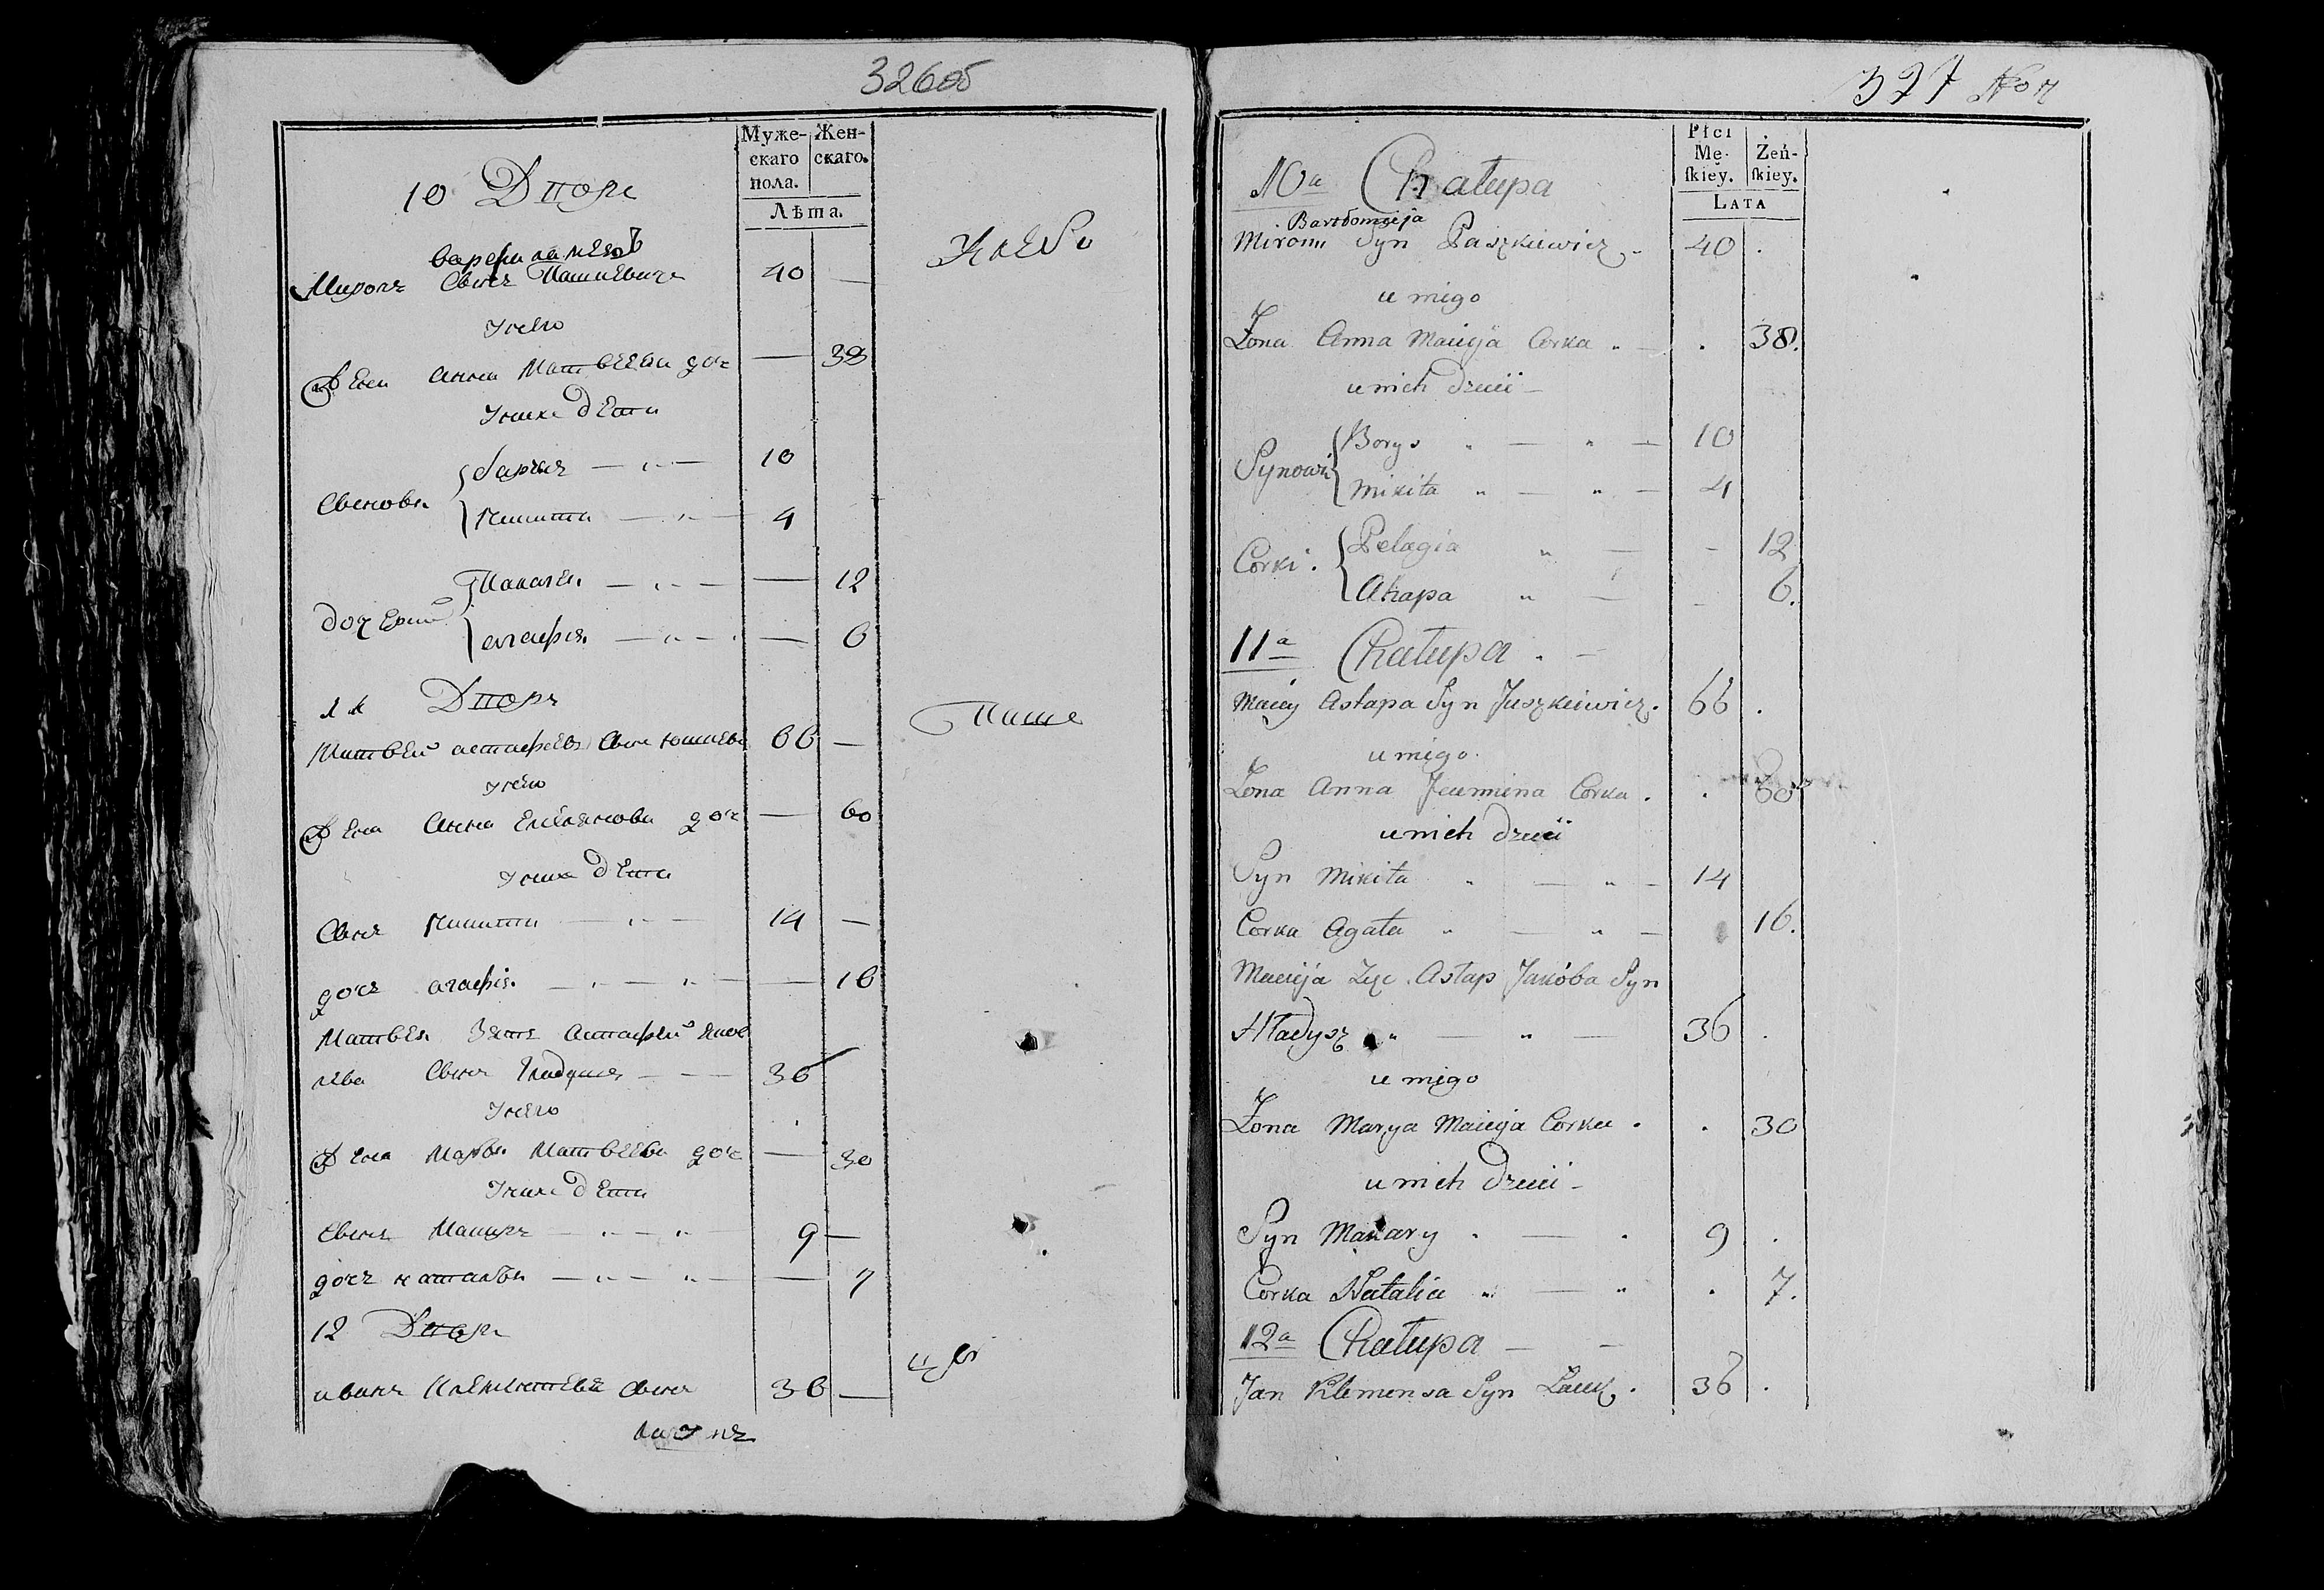 326об
Муже- Жен-
скаго скаго.
пола.
Лѣта.
10 Дворъ
варфаламеевъ
Миронъ Сынъ Пашкевичъ 40 —
Унего
Жена Анна Матвеева доч — 38
Уних дети
Сыновя
Барысъ — „ — 10
Микита — „ — 4
дочери
Палагея — „ — — 12
агафія — „ — — 6
11 Дворъ
Матвей астафеевъ Сынъ юшкеви 66 —
унего
Жена Анна Емелянова доч — 60
Уних дети
Сынъ Микита — „ — 14 —
дочъ агафія — „ — „ — — 16
Матвея Зять Астафей Яков
лева Сынъ Гладышъ — — 36
Унего
Жена Маря Матвеева доч — 30
Уних дети
Сынъ Макаръ — „ — „ 9 —
дочъ наталя — „ — „ — — 7
12 Дворъ
иванъ Клементева Сынъ 36 —
327
Płci
Mę- Żeń-
ſkiey. ſkiey.
LATA
10a Chałupa
Bartłomieja
Miron Syn Paszkiewicz 40 .
u niego
Żona Anna Macieja Corka . 38.
u nich dzieci
Synowie
Borys „ — „ — 10
Mikita „ — „ — 4
Corki.
Pelagia „ — - 12
Ahapa „ — - 6.
11a Chałupa . —
Maciey Astapa Syn Juszkiewicz. 66 .
u niego.
Żona Anna Jaumiena Corka . . 60
u nich dzieci
Syn Mikita „ — „ — 14
Corka Agata „ — „ — 16.
Macieja Zięc Astap Jakóba Syn
Hładysz „ — „ — 36 .
u niego
Żona Marya Macieja Corka . . 30
u nich dzieci
Syn Makary . — . 9 .
Corka Natalia „ — „ . 7.
12a Chałupa — —
Jan Klemensa Syn 36 .